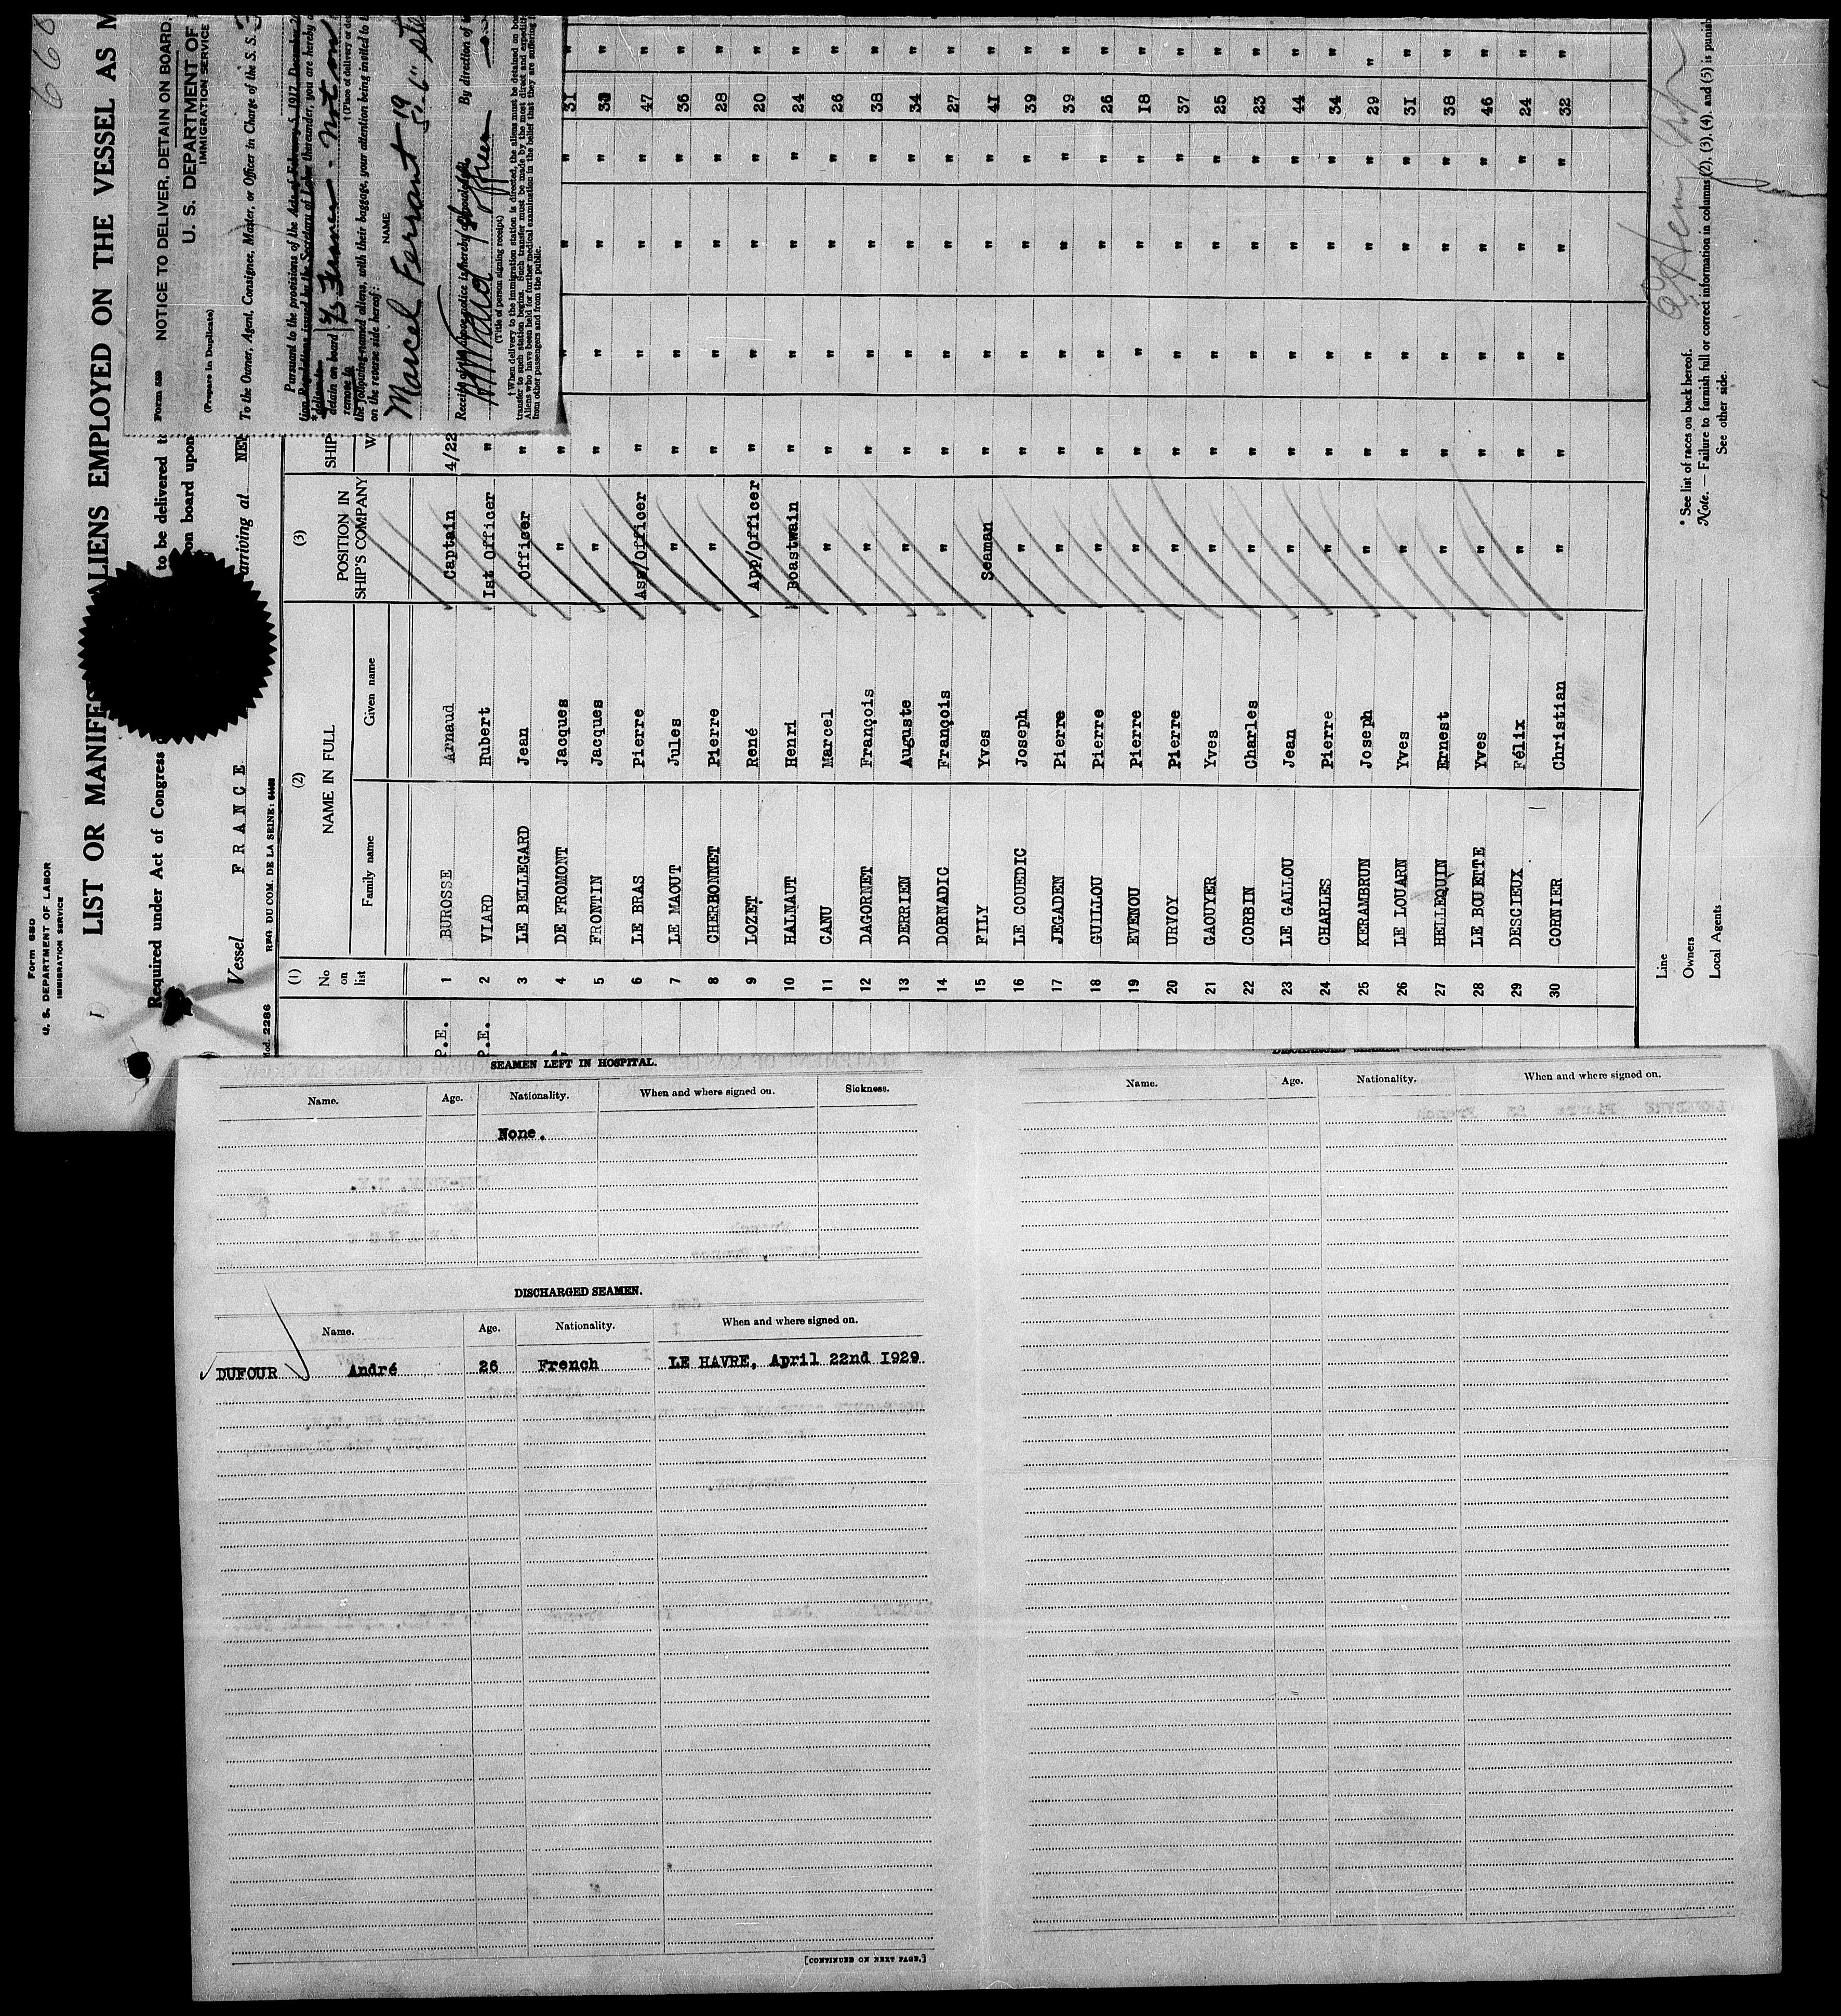 Form 680
U. S. DEPARTMENT OF LABOR
IMMIGRATION SERVICE
LIST OR MANIFES ALIENS EMPLOYED ON THE VESSEL AS M
Required under Act of Congress to be delivered t
on board upon
Vessel FRANCE arriving at NEW
REG. DU COM. DE LA SEINE:
Mod. 2286
Form 539 NOTICE TO DELIVER, DETAIN ON BOARD,
U. S. DEPARTMENT OF
IMMIGRATION SERVICE
(Prepare in Duplicate)
To the Owner, Agent, Consignee, Master, or Officer in Charge of the S. S.
Pursuant to the provisions of the Act of February 5, 1917, December 2
tion Regulations issued by the Secretary of Labor thereunder, you are hereby
detain on board
† (Place of delivery or de
remove to
the following-named aliens, with their baggage, your attention being invited to t
on the reverse side hereof:
NAME
Marcel Ferrant 19
By direction of
(Title of person signing receipt)
† When delivery to the immigration station is directed, the aliens must be detained on boa
transfer to such station begins. Such transfer must be made by the most direct and expediti
Aliens who have been held for further medical examination in the belief that they are suffering
from other passengers and from the public.
(1) (2) (3)
No on list NAME IN FULL POSITION IN SHIP'S COMPANY SHIP
Family name Given name W
P.E. 1 BUROSSE Arnaud Captain 4/22
P.E. 2 VIARD Hubert Ist Officer "
3 LE BELLEGARD Jean Officer "
4 DE FROMONT Jacques " " " " " " 31 "
5 FRONTIN Jacques " " " " " "
6 LE BRAS Pierre Ass/Officer " " " " 47 "
7 LE MAOUT Jules " " " " " 36 "
8 CHERBONNET Pierre " " " " " 28 "
9 LOZET René App/Officer " " " " 20 "
10 HALNAUT Henri Boastwain " " " " 24 "
11 CANU Marcel " " " " " 26 "
12 DAGORNET François " " " " " 38 "
13 DERRIEN Auguste " " " " " 34 "
14 DORNADIC François " " " " " 27 "
15 FILY Yves Seaman " " " " 41 "
16 LE COUEDIC Joseph " " " " " 39 "
17 JEGADEN Pierre " " " " " 39 "
18 GUILLOU Pierre " " " " " 26 "
19 EVENOU Pierre " " " " " I8 "
20 URVOY Pierre " " " " " 37 "
21 GAOUYER Yves " " " " " 25 "
22 CORBIN Charles " " " " " 23 "
23 LE GALLOU Jean " " " " " 44 "
24 CHARLES Pierre " " " " " 34 "
25 KERAMBRUN Joseph " " " " " 29 "
26 LE LOUARN Yves " " " " " 31 "
27 HELLEQUIN Ernest " " " " " 38 "
28 LE BOUETTE Yves " " " " " 46 "
29 DESCIEUX Félix " " " " " 24 "
30 CORNIER Christian " " " " " 32 "
Line
Owners
Local Agents
* See list of races on back hereof.
Note. — Failure to furnish full or correct information in columns (2), (3), (4), and (5) is punish
See other side.
SEAMEN LEFT IN HOSPITAL.
Name. Age. Nationality. When and where signed on. Sickness.
None.
DISCHARGED SEAMEN.
Name. Age. Nationality. When and where signed on.
DUFOUR André 26 French LE HAVRE, April 22nd I929
[CONTINUED ON NEXT PAGE.]
Name. Age. Nationality. When and where signed on.